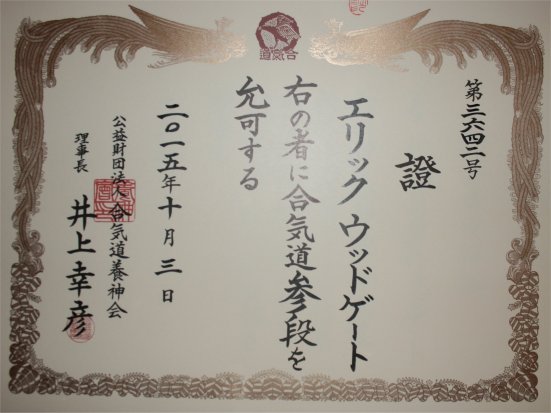 合氣道
第三六四二号
證
エリック ウッドゲート
右の者に合気道参段を
允可する
二〇一五年十月三日
公益財団法人 合気道養神会
理事長 井上幸彦